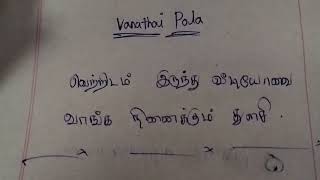 Vanathai Pola
வெற்றிடம் இருந்த வீடியோவை
வாங்க நினைக்கும் துளசி.